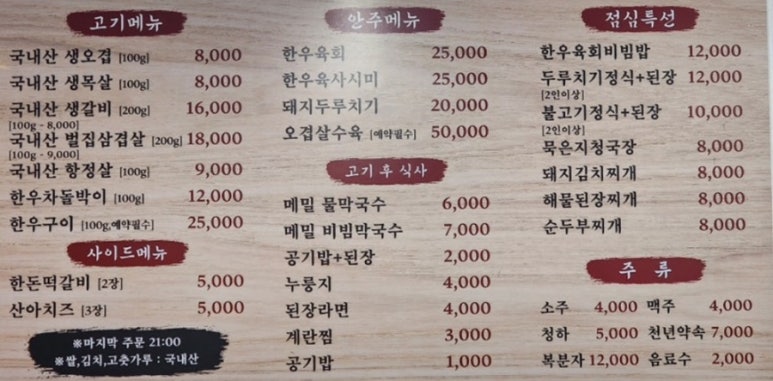 고기메뉴
국내산 생오겹 [100g] 8,000
국내산 생목살 [100g] 8,000
국내산 생갈비 [200g] 16,000
[100g - 8,000]
국내산 벌집삼겹살 [200g] 18,000
[100g - 9,000]
국내산 항정살 [100g] 9,000
한우차돌박이 [100g] 12,000
한우구이 [100g,예약필수] 25,000
사이드메뉴
한돈떡갈비 [2장] 5,000
산아치즈 [3장] 5,000
※마지막 주문 21:00
※쌀,김치,고춧가루 : 국내산
안주메뉴
한우육회 25,000
한우육사시미 25,000
돼지두루치기 20,000
오겹살수육 [예약필수] 50,000
고기 후 식사
메밀 물막국수 6,000
메밀 비빔막국수 7,000
공기밥+된장 2,000
누룽지 4,000
된장라면 4,000
계란찜 3,000
공기밥 1,000
점심특선
한우육회비빔밥 12,000
두루치기정식+된장 12,000
[2인이상]
불고기정식+된장 10,000
[2인이상]
묵은지청국장 8,000
돼지김치찌개 8,000
해물된장찌개 8,000
순두부찌개 8,000
주 류
소주 4,000 맥주 4,000
청하 5,000 천년약속 7,000
복분자 12,000 음료수 2,000